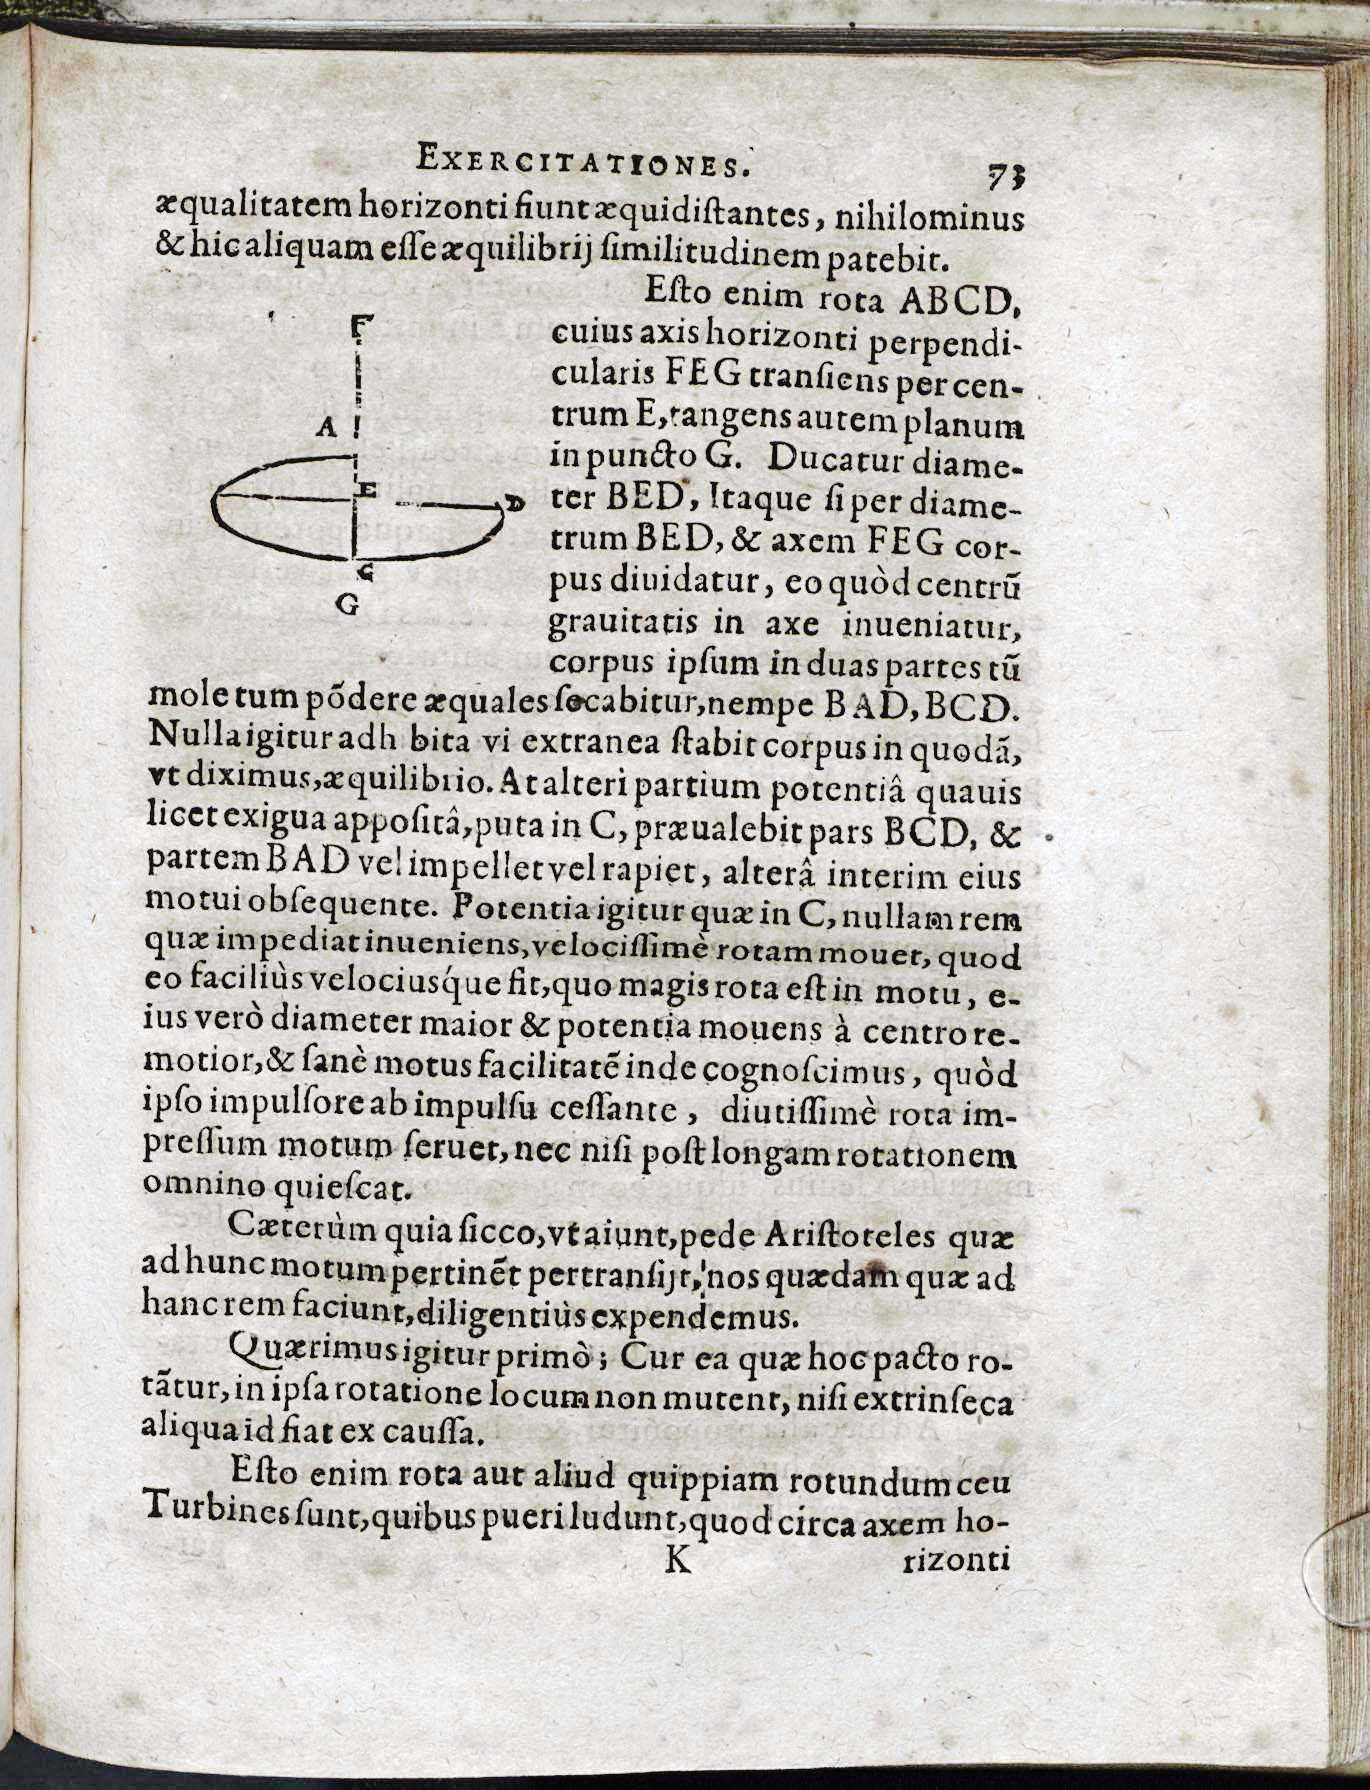 EXERCITATIONES. 73
æqualitatem horizonti fiunt æquidiſtantes, nihilominus
& hic aliquam eſſe æquilibrij ſimilitudinem patebit.
Eſto enim rota ABCD,
cuius axis horizonti perpendi-
cularis FEG tranſiens per cen-
trum E, tangens autem planum
in puncto G. Ducatur diame-
ter BED, Itaque ſi per diame-
trum BED, & axem FEG cor-
pus diuidatur, eo quòd centrũ
grauitatis in axe inueniatur,
corpus ipſum in duas partes tũ
F
A
E
D
C
G
mole tum põdere æquales ſecabitur, nempe BAD, BCD.
Nulla igitur adh bita vi extranea ſtabit corpus in quodã,
vt diximus, æquilibrio. At alteri partium potentiâ quauis
licet exigua appoſitâ, puta in C, præualebit pars BCD, &
partem BAD vel impellet vel rapiet, alterâ interim eius
motui obſequente. Potentia igitur quæ in C, nullam rem
quæ impediat inueniens, velociſſimè rotam mouet, quod
eo faciliùs velociusq́ue fit, quo magis rota eſt in motu, e-
ius verò diameter maior & potentia mouens à centro re-
motior, & ſanè motus facilitatẽ inde cognoſcimus, quòd
ipſo impulſore ab impulſu ceſſante, diutiſſimè rota im-
preſſum motum ſeruet, nec niſi poſt longam rotationem
omnino quieſcat.
Cæterùm quia ſicco, vt aiunt, pede Ariſtoteles quæ
ad hunc motum pertinẽt pertranſijt, nos quædam quæ ad
hanc rem faciunt, diligentiùs expendemus.
Quærimus igitur primò; Cur ea quæ hoc pacto ro-
tãtur, in ipſa rotatione locum non mutent, niſi extrinſeca
aliqua id fiat ex cauſſa.
Eſto enim rota aut aliud quippiam rotundum ceu
Turbines ſunt, quibus pueri ludunt, quod circa axem ho-
K rizonti